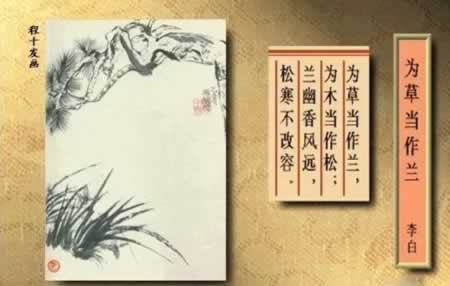 为草当作兰
李白
为草当作兰，
为木当作松；
兰幽香风远，
松寒不改容．
程十发画